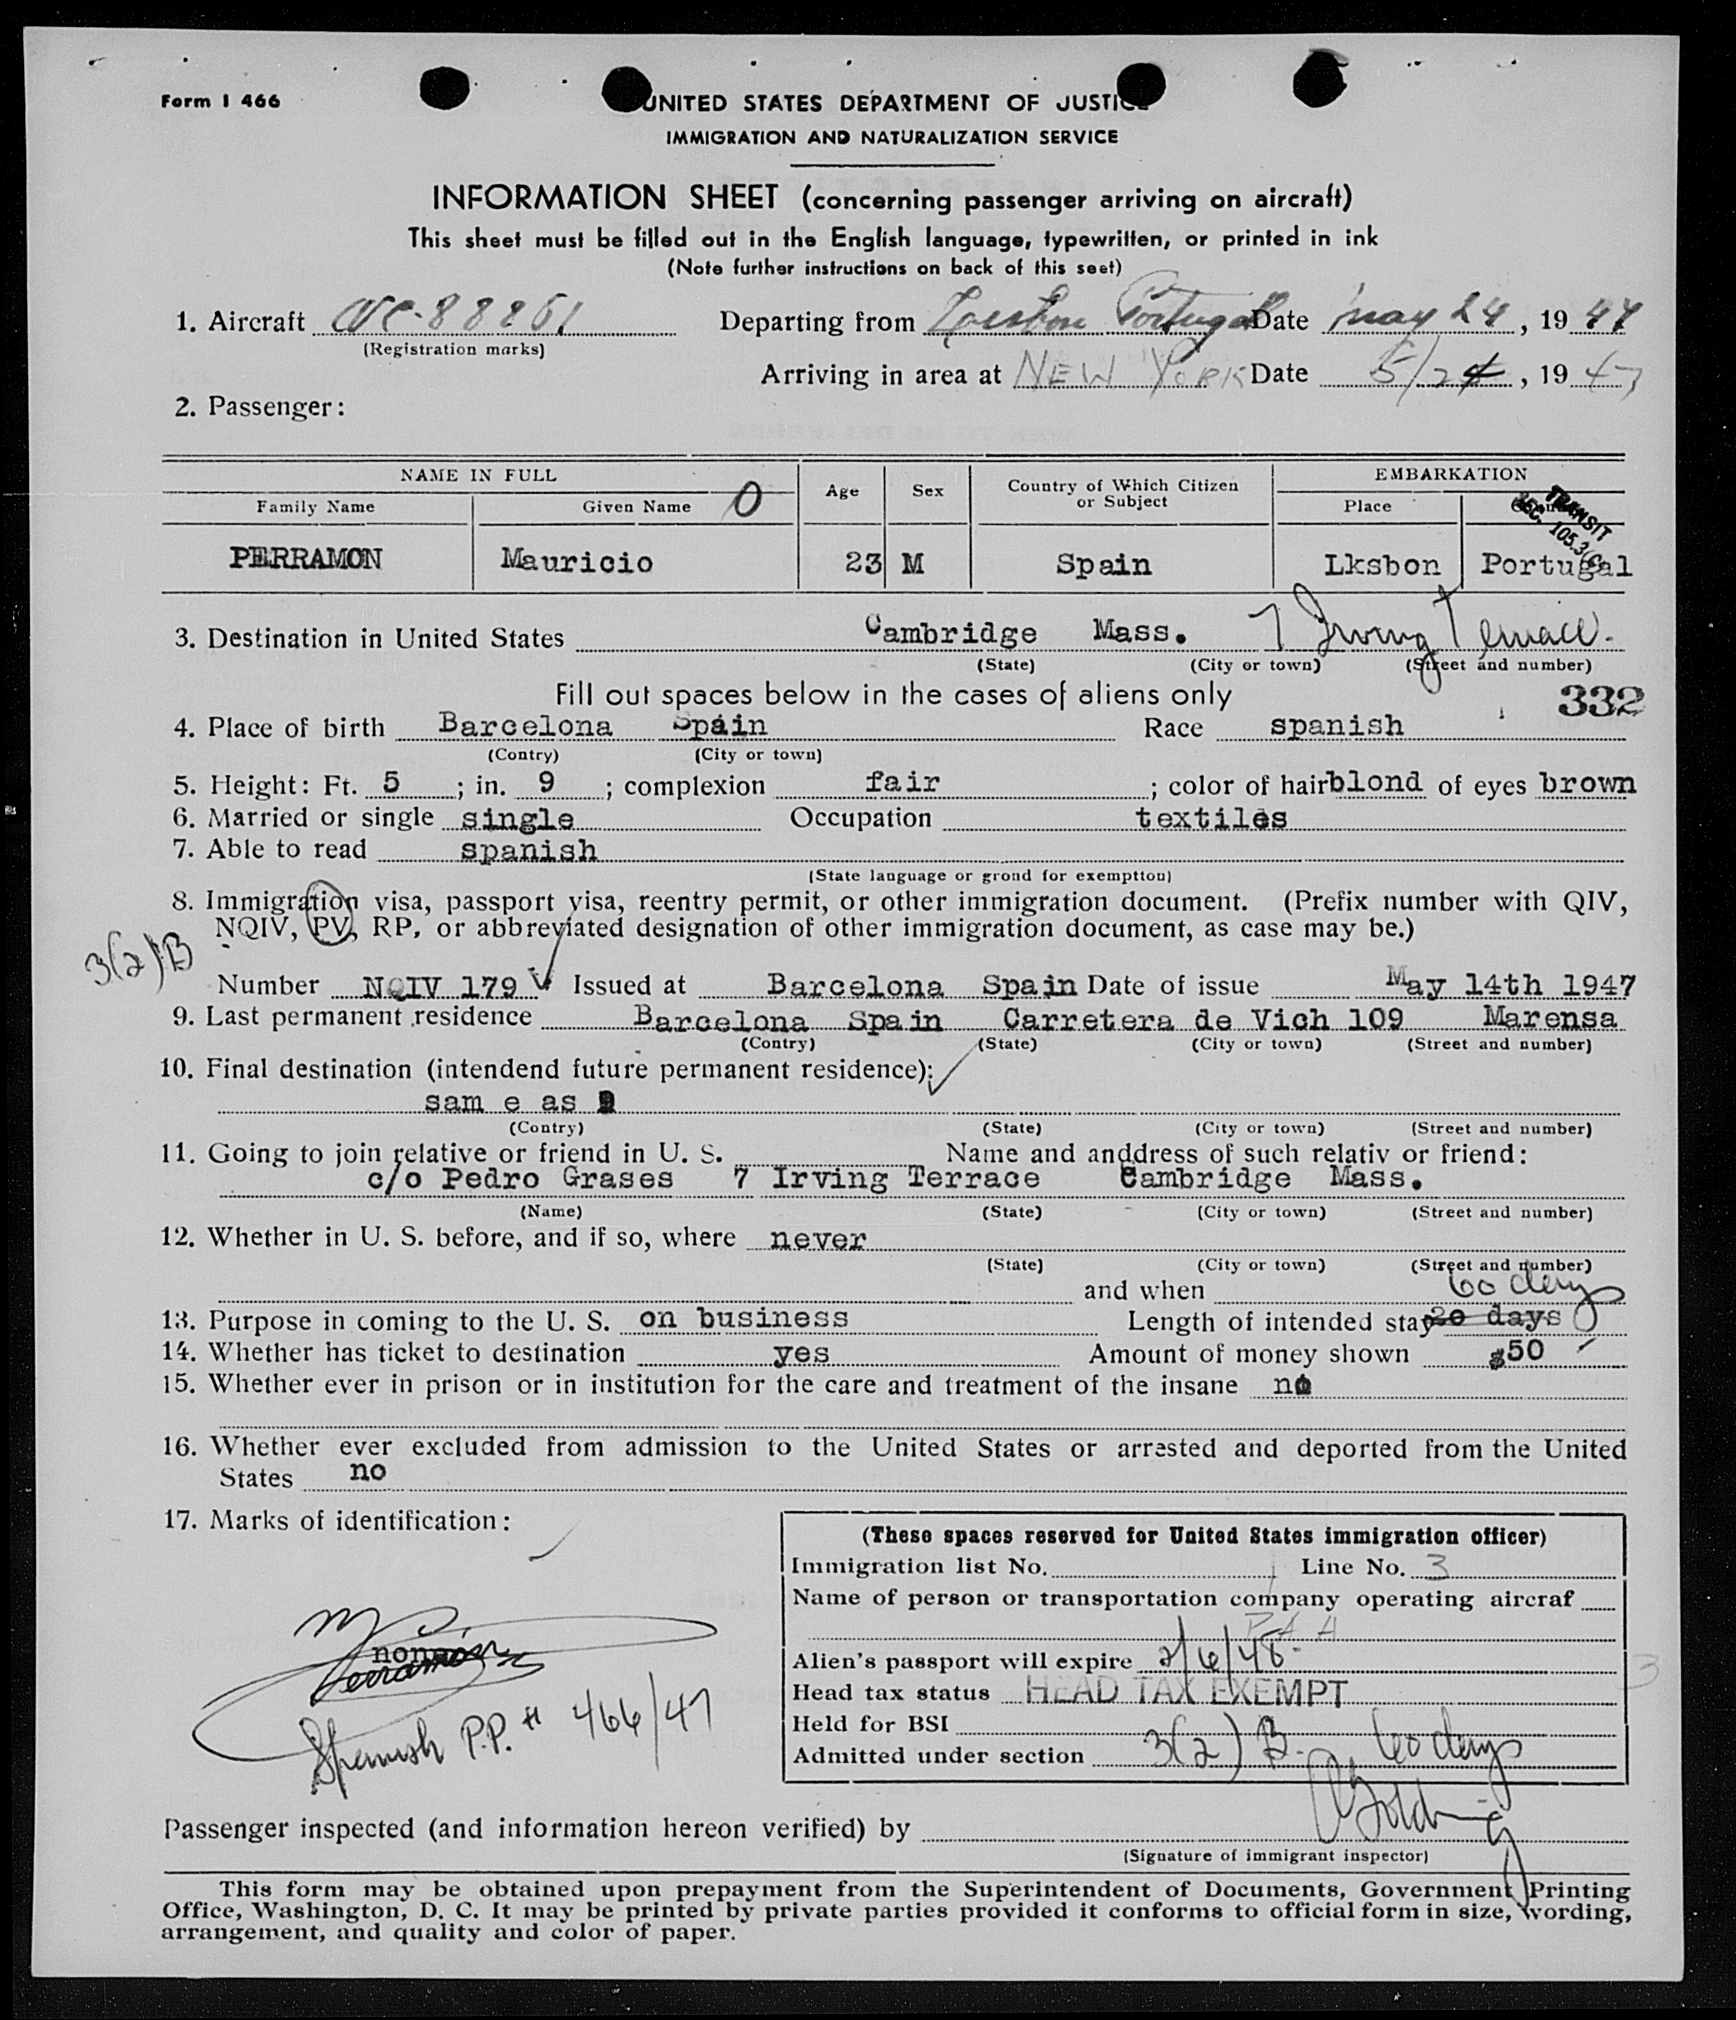 Form I 466
UNITED STATES DEPARTMENT OF JUSTICE
IMMIGRATION AND NATURALIZATION SERVICE
INFORMATION SHEET (concerning passenger arriving on aircraft)
This sheet must be filled out in the English language, typewritten, or printed in ink
(Note further instructions on back of this seet)
1. Aircraft NC-88861 Departing from Lisbon Portugal Date may 24, 1947
(Registration marks)
Arriving in area at NEW YORK Date 5/24, 1947
2. Passenger:
NAME IN FULL Age Sex Country of Which Citizen or Subject EMBARKATION
Family Name Given Name O Place
TRANSIT
SEC. 105.3(
PERRAMON Mauricio 23 M Spain Lksbon Portugal
3. Destination in United States Cambridge Mass. 7 Irving Terrace.
(State) (City or town) (Street and number)
Fill out spaces below in the cases of aliens only
332
4. Place of birth Barcelona Spain Race spanish
(Contry) (City or town)
5. Height: Ft. 5 ; in. 9 ; complexion fair ; color of hair blond of eyes brown
6. Married or single single Occupation textiles
7. Able to read spanish
(State language or grond for exemption)
8. Immigration visa, passport visa, reentry permit, or other immigration document. (Prefix number with QIV,
NQIV, PV, RP, or abbreviated designation of other immigration document, as case may be.)
3(2)B
Number NQIV 179 Issued at Barcelona Spain Date of issue May 14th 1947
9. Last permanent residence Barcelona Spain Carretera de Vich 109 Marensa
(Contry) (State) (City or town) (Street and number)
10. Final destination (intendend future permanent residence):
sam e as 9
(Contry) (State) (City or town) (Street and number)
11. Going to join relative or friend in U. S. Name and anddress of such relativ or friend:
c/o Pedro Grases 7 Irving Terrace Cambridge Mass.
(Name) (State) (City or town) (Street and number)
12. Whether in U. S. before, and if so, where never
(State) (City or town) (Street and number)
and when 60 days
13. Purpose in coming to the U. S. on business Length of intended stay 20 days
14. Whether has ticket to destination yes Amount of money shown $50
15. Whether ever in prison or in institution for the care and treatment of the insane no
16. Whether ever excluded from admission to the United States or arrested and deported from the United
States no
17. Marks of identification:
none
M. Perramon
Spanish P.P. # 466/47
(These spaces reserved for United States immigration officer)
Immigration list No. Line No. 3
Name of person or transportation company operating aircraf
PAA
Alien's passport will expire 2/6/48 3
Head tax status HEAD TAX EXEMPT
Held for BSI
Admitted under section 3(2)B. 60 days
Passenger inspected (and information hereon verified) by
(Signature of immigrant inspector)
This form may be obtained upon prepayment from the Superintendent of Documents, Government Printing
Office, Washington, D. C. It may be printed by private parties provided it conforms to official form in size, wording,
arrangement, and quality and color of paper.